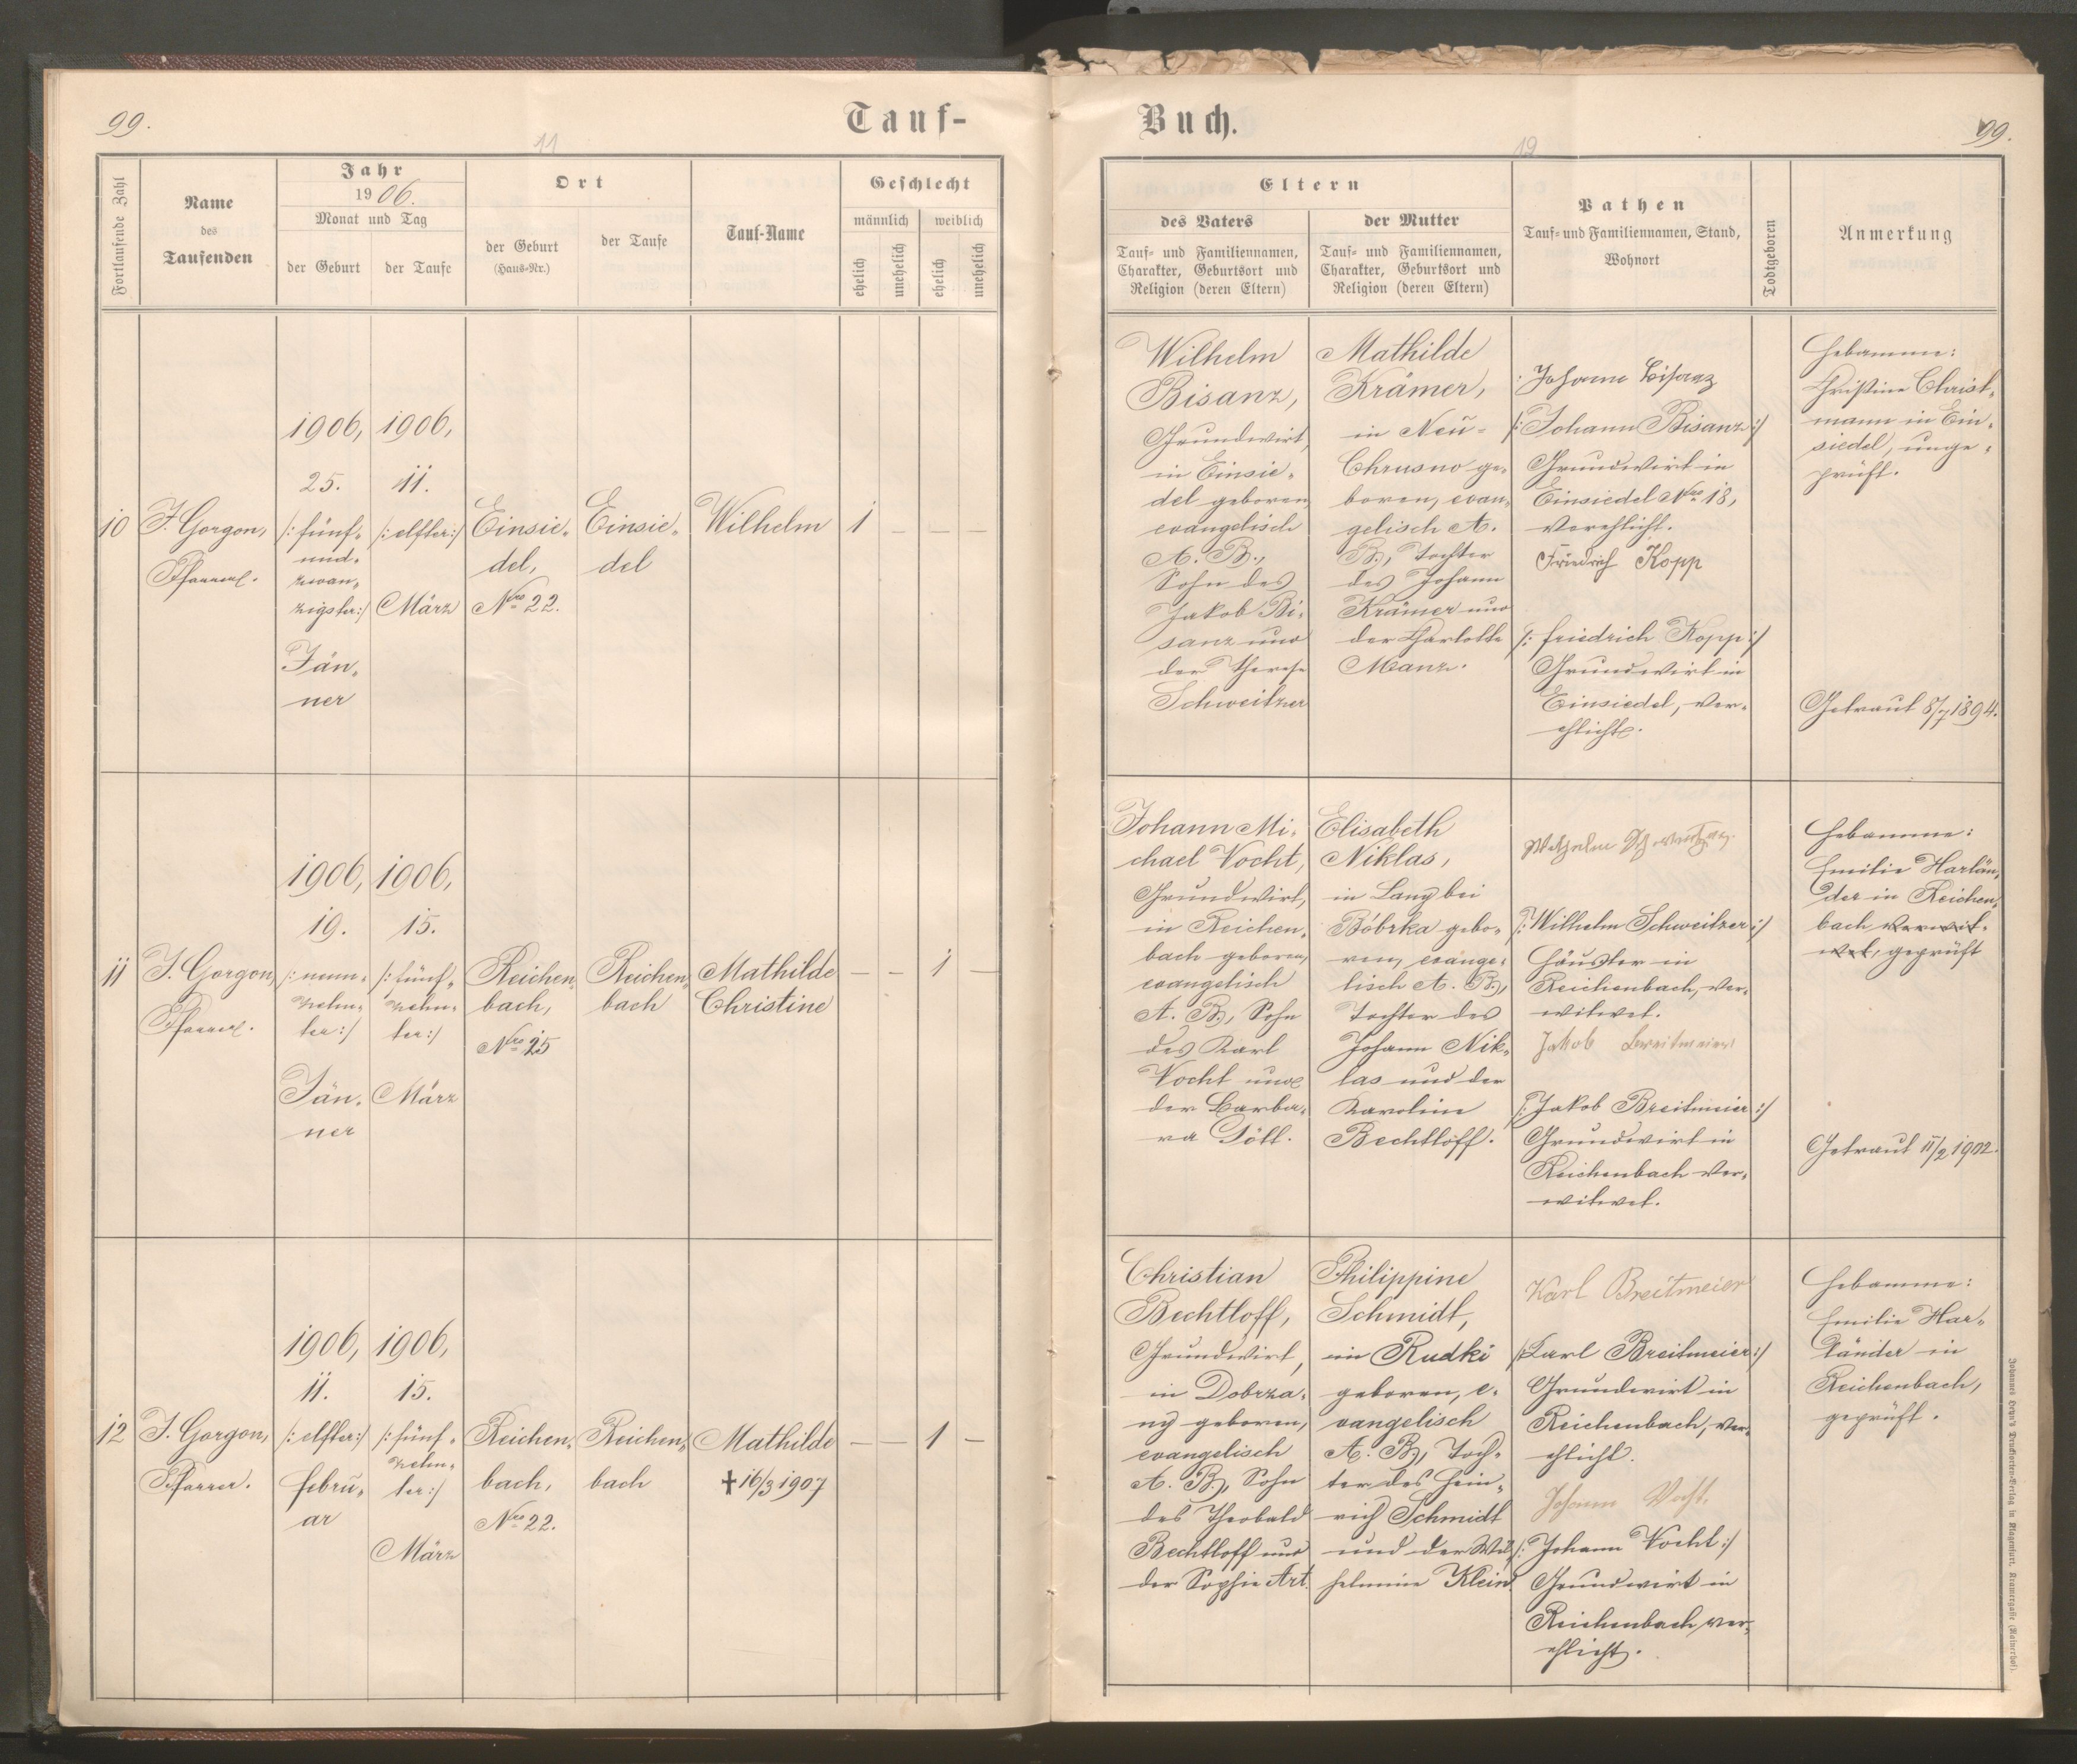 99.
Tauf-
11
Fortlaufende Zahl
Name
des
Taufenden
Jahr
1906.
Monat und Tag
der Geburt
der Taufe
Ort
der Geburt
(Haus-Nr.)
der Taufe
Tauf-Name
Geschlecht
männlich
weiblich
ehelich
unehelich
ehelich
unehelich
10
J. Gorgon,
Pfarrer.
1906,
25.
/: fünf-
und-
zwan-
zigster :/
Jän-
ner
1906,
11.
/: elfter :/
März
Einsie-
del,
Nro 22.
Einsie-
del
Wilhelm
1 — — —
11
J. Gorgon,
Pfarrer.
1906,
19.
/: neun-
zehn-
ter :/
Jän-
ner
1906,
15.
/: fünf-
zehn-
ter :/
März
Reichen-
bach,
Nro 25
Reichen-
bach
Mathilde
Christine
— — 1 —
12
J. Gorgon,
Pfarrer.
1906,
11.
/: elfter :/
Febru-
ar
1906,
15.
/: fünf-
zehn-
ter :/
März
Reichen-
bach,
Nro 22.
Reichen-
bach
Mathilde
† 16/3 1907
— — 1 —
Buch.
99.
19
Eltern
des Vaters
Tauf- und Familiennamen,
Charakter, Geburtsort und
Religion (deren Eltern)
der Mutter
Tauf- und Familiennamen,
Charakter, Geburtsort und
Religion (deren Eltern)
Pathen
Tauf- und Familiennamen, Stand,
Wohnort
Todtgeboren
Anmerkung
Wilhelm
Bisanz,
Grundwirt,
in Einsie-
del geboren,
evangelisch
A. B.,
Sohn des
Jakob Bi-
sanz und
der Therese
Schweitzer
Mathilde
Krämer,
in Neu-
Chrusno ge-
boren, evan-
gelisch A.
B., Tochter
des Johann
Krämer und
der Charlotte
Manz.
Johann Bisanz
/: Johann Bisanz :/
Grundwirt in
Einsiedel Nro 18,
verehlicht.
Friedrich Kopp
/: Friedrich Kopp :/
Grundwirt in
Einsiedel, ver-
ehlicht.
Hebamme:
Christine Christ-
mann in Ein-
siedel, unge-
prüft.
Getraut 8/7 1894.
Johann Mi-
chael Vocht,
Grundwirt,
in Reichen-
bach geboren,
evangelisch
A. B., Sohn
des Karl
Vocht und
der Barba-
ra Döll.
Elisabeth
Niklas,
in Lany bei
Bóbrka gebo-
ren, evange-
lisch A. B.,
Tochter des
Johann Nik-
las und der
Karoline
Bechtloff.
Wilhelm Schweitzer
/: Wilhelm Schweitzer :/
Häusler in
Reichenbach, ver-
witwet.
Jakob Breitmeier
/: Jakob Breitmeier :/
Grundwirt in
Reichenbach ver-
witwet.
Hebamme:
Emilie Harlän-
der in Reichen-
bach verwit-
wet, geprüft
Getraut 11/2 1902.
Christian
Bechtloff,
Grundwirt,
in Dobrza-
ny geboren,
evangelisch
A. B., Sohn
des Theobald
Bechtloff und
der Sophie Art.
Philippine
Schmidt,
in Rudki
geboren, e-
vangelisch
A. B., Toch-
ter des Hein-
rich Schmidt
und der Wil-
helmine Klein.
Karl Breitmeier
/: Karl Breitmeier :/
Grundwirt in
Reichenbach, ver-
ehlicht.
Johann Vocht.
/: Johann Vocht :/
Grundwirt in
Reichenbach, ver-
ehlicht.
Hebamme:
Emilie Har-
länder in
Reichenbach,
geprüft.
Johannes Heyn's Drucksorten-Verlag in Klagenfurt, Kramergasse (Rainerhof).